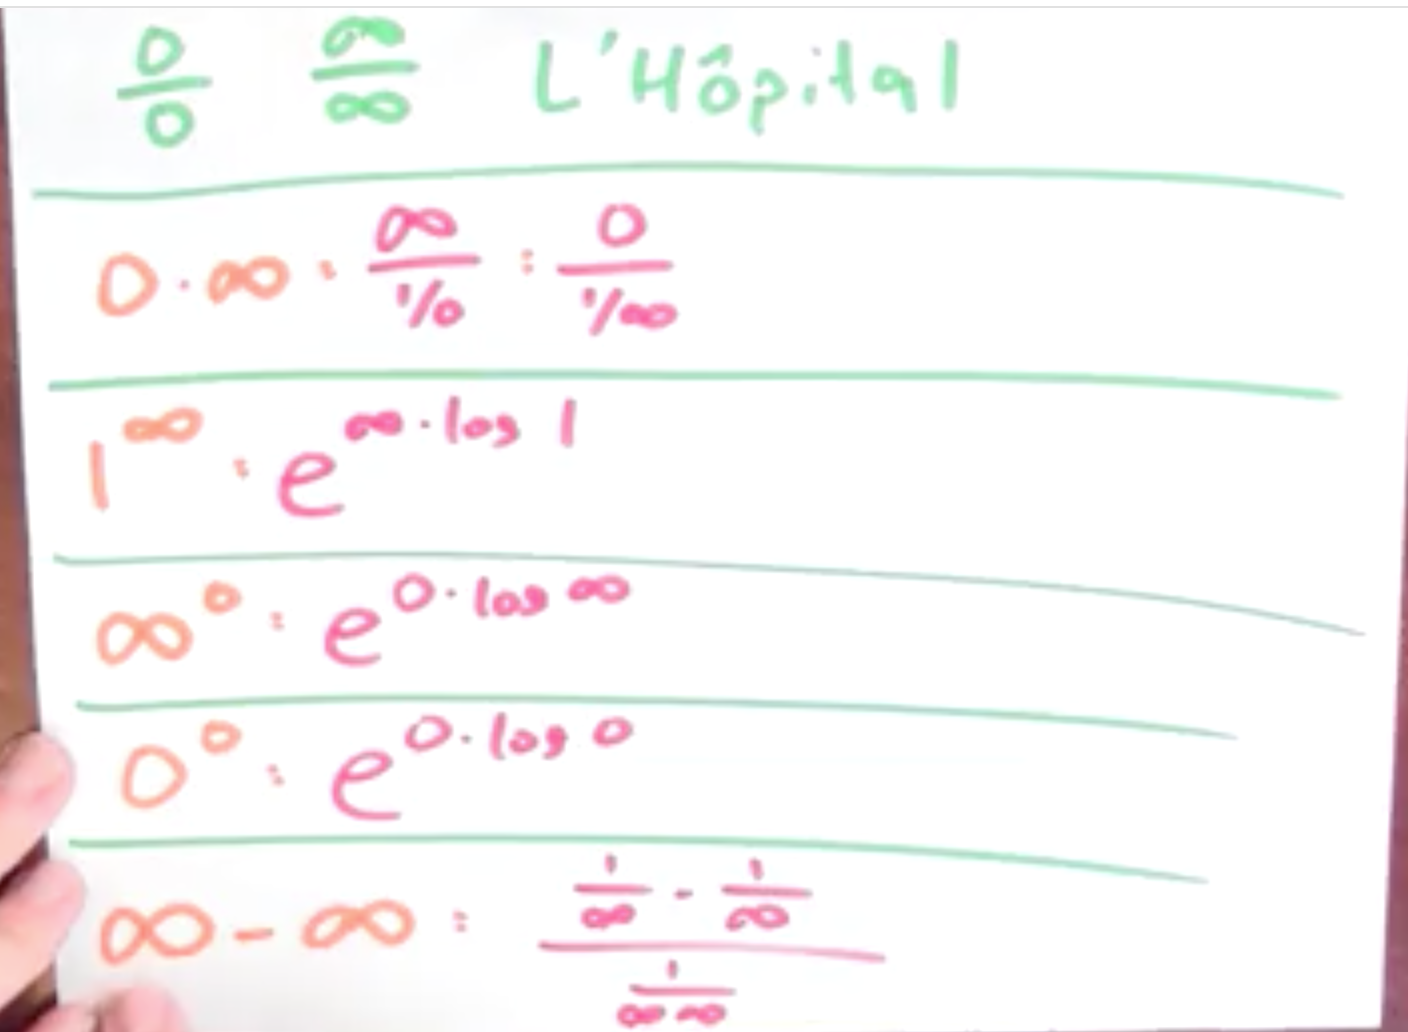 0/0 ∞/∞ L'Hôpital
0·∞ : ∞/(1/0) : 0/(1/∞)
1^∞ : e^(∞·log 1)
∞^0 : e^(0·log ∞)
0^0 : e^(0·log 0)
∞-∞ : (1/∞ - 1/∞)/(1/(∞∞))